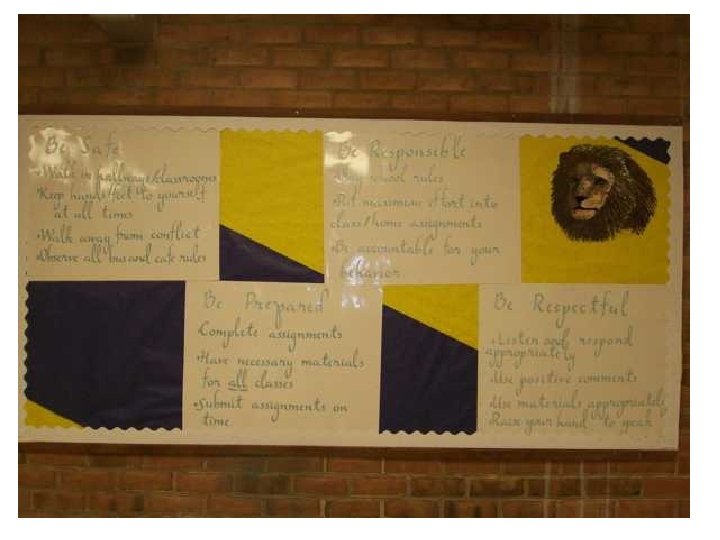 Be Safe
•Walk in hallways/classrooms
•Keep hands/feet to yourself
at all times
•Walk away from conflict
•Observe all bus and cafe rules
Be Responsible
school rules
•Put maximum effort into
class/home assignments
•Be accountable for your
behavior
Be Prepared
•Complete assignments
•Have necessary materials
for all classes
•Submit assignments on
time
Be Respectful
•Listen and respond
appropriately
•Use positive comments
•Use materials appropriately
Raise your hand to speak